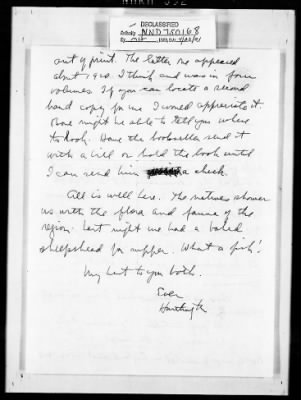 DECLASSIFIED
NND 750168
out of print. The latter one appeared
about 1920 I think and was in four
volumes. If you can locate a second
hand copy for me I would appreciate it.
might be able to tell you where
to look. Have the bookseller send it
with a bill or hold the book until
I can send him a check.
All is well here. The natives shower
us with the flora and fauna of the
region. Last night we had a baked
sheepshead for supper. What a fish!
My best to you both.
Ever
Huntington